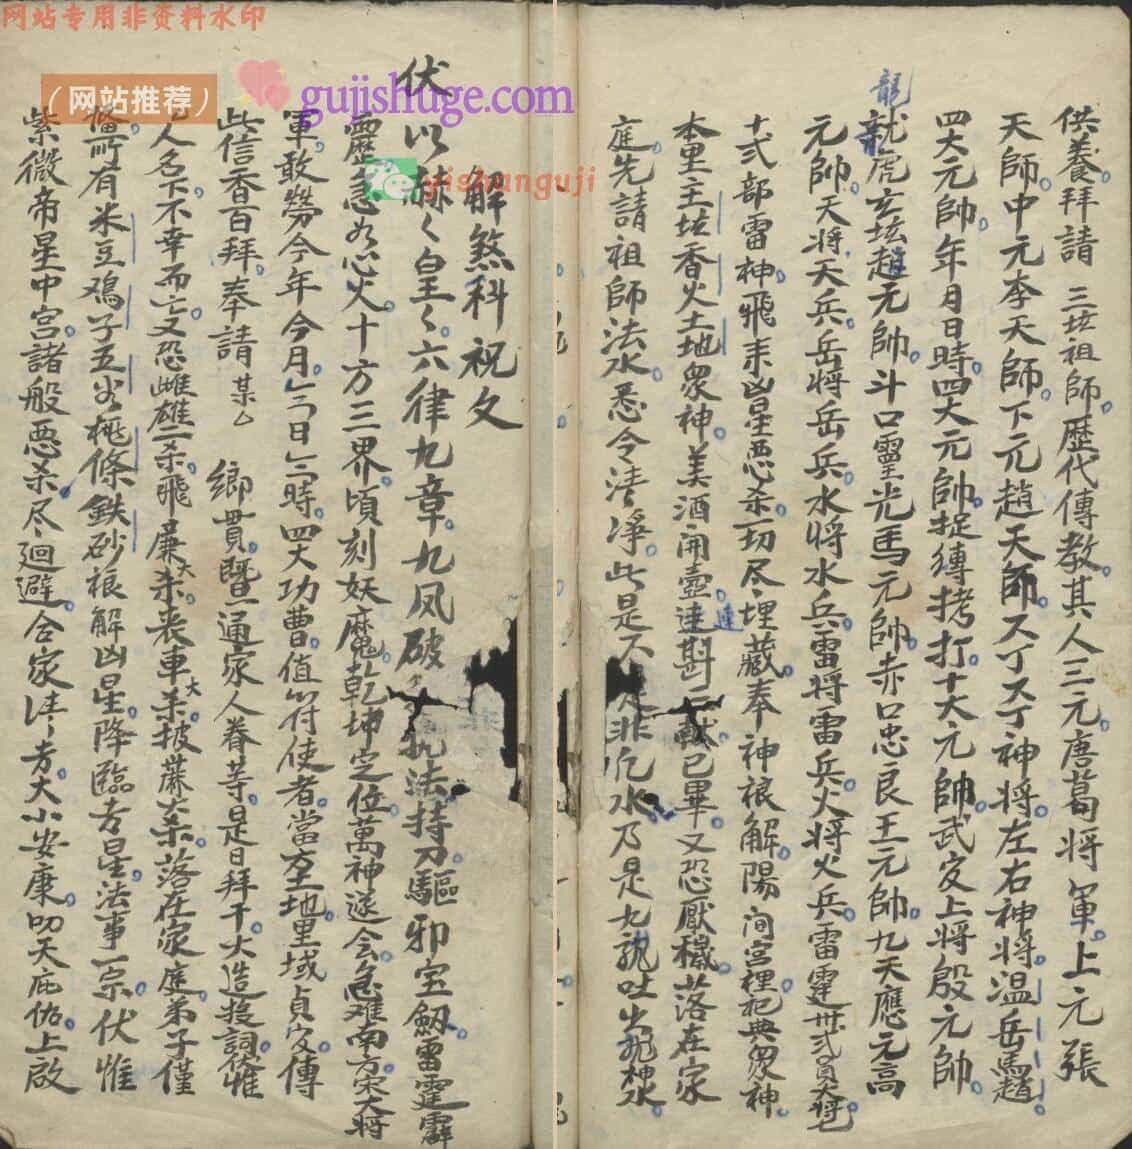 网站专用非资料水印
（网站推荐）
gujishuge.com
yishanguji
供養拜請　三坛祖師歷代傳教其人三元唐葛將軍上元張
天師中元李天師下元趙天師六丁六丁神將左右神將温岳馬趙
四大元帥年月日時四大元帥捉縛拷打十大元帥武安上將殷元帥
龍
龍虎玄坛趙元帥斗口靈光馬元帥赤口忠良王元帥九天應元高
元帥天將天兵岳將岳兵水將水兵雷將雷兵火將火兵雷霆卅弍員大將
十弍部雷神飛来凶星惡杀一切尽埋藏奉神祿解陽间宫裡祀典眾神
本里主坛香火土地眾神美酒開壺連斟二献已畢又恐厭穢落在家
連
庭先請祖師法水悉令清淨此是不　是非凡水乃是九龍吐出龍神水
解煞科祝文
伏以赫〻皇〻六律九章九凤破　　执法持刀驅邪宝劔雷霆霹
靂急如心火十方三界頃刻妖魔乾坤定位萬神遂令急难南方宋大將
軍敢勞今年今月今日今時四大功曹值符使者當方土地里域貞官傳
此信香百拜奉請某厶　鄉貫暨通家人眷等是日拜干大造投詞伏惟
人名下不幸而亡又恐雌雄二杀飛廉大杀喪車大杀披蔴大杀落在家庭弟子僅
偹所有米豆鸡子五谷桃條鉄砂祿解凶星降臨吉星法事一宗伏惟
紫微帝星中宫諸般惡杀尽迴避合家清吉大小安康叨天庇佑上啟